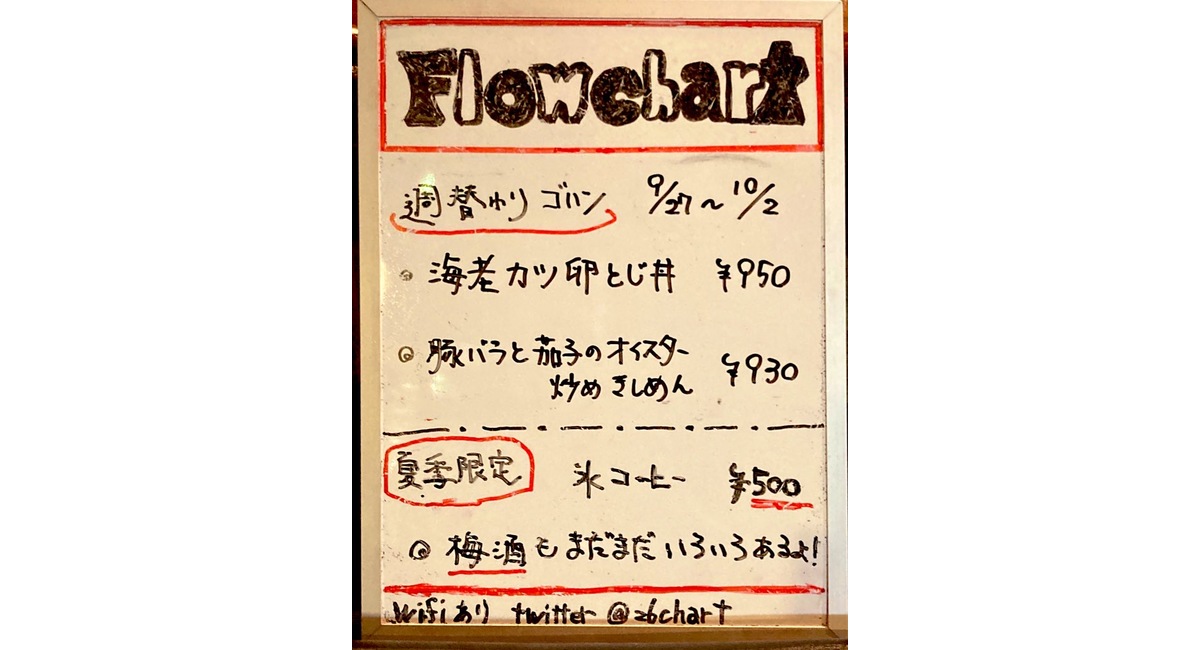 Flowchart
週替わり ゴハン 9/27～10/2
海老カツ卵とじ丼 ¥950
豚バラと茄子のオイスター
炒めきしめん ¥930
夏季限定 氷コーヒー ¥500
梅酒もまだまだいろいろあるよ!
wifiあり twitter @26chart